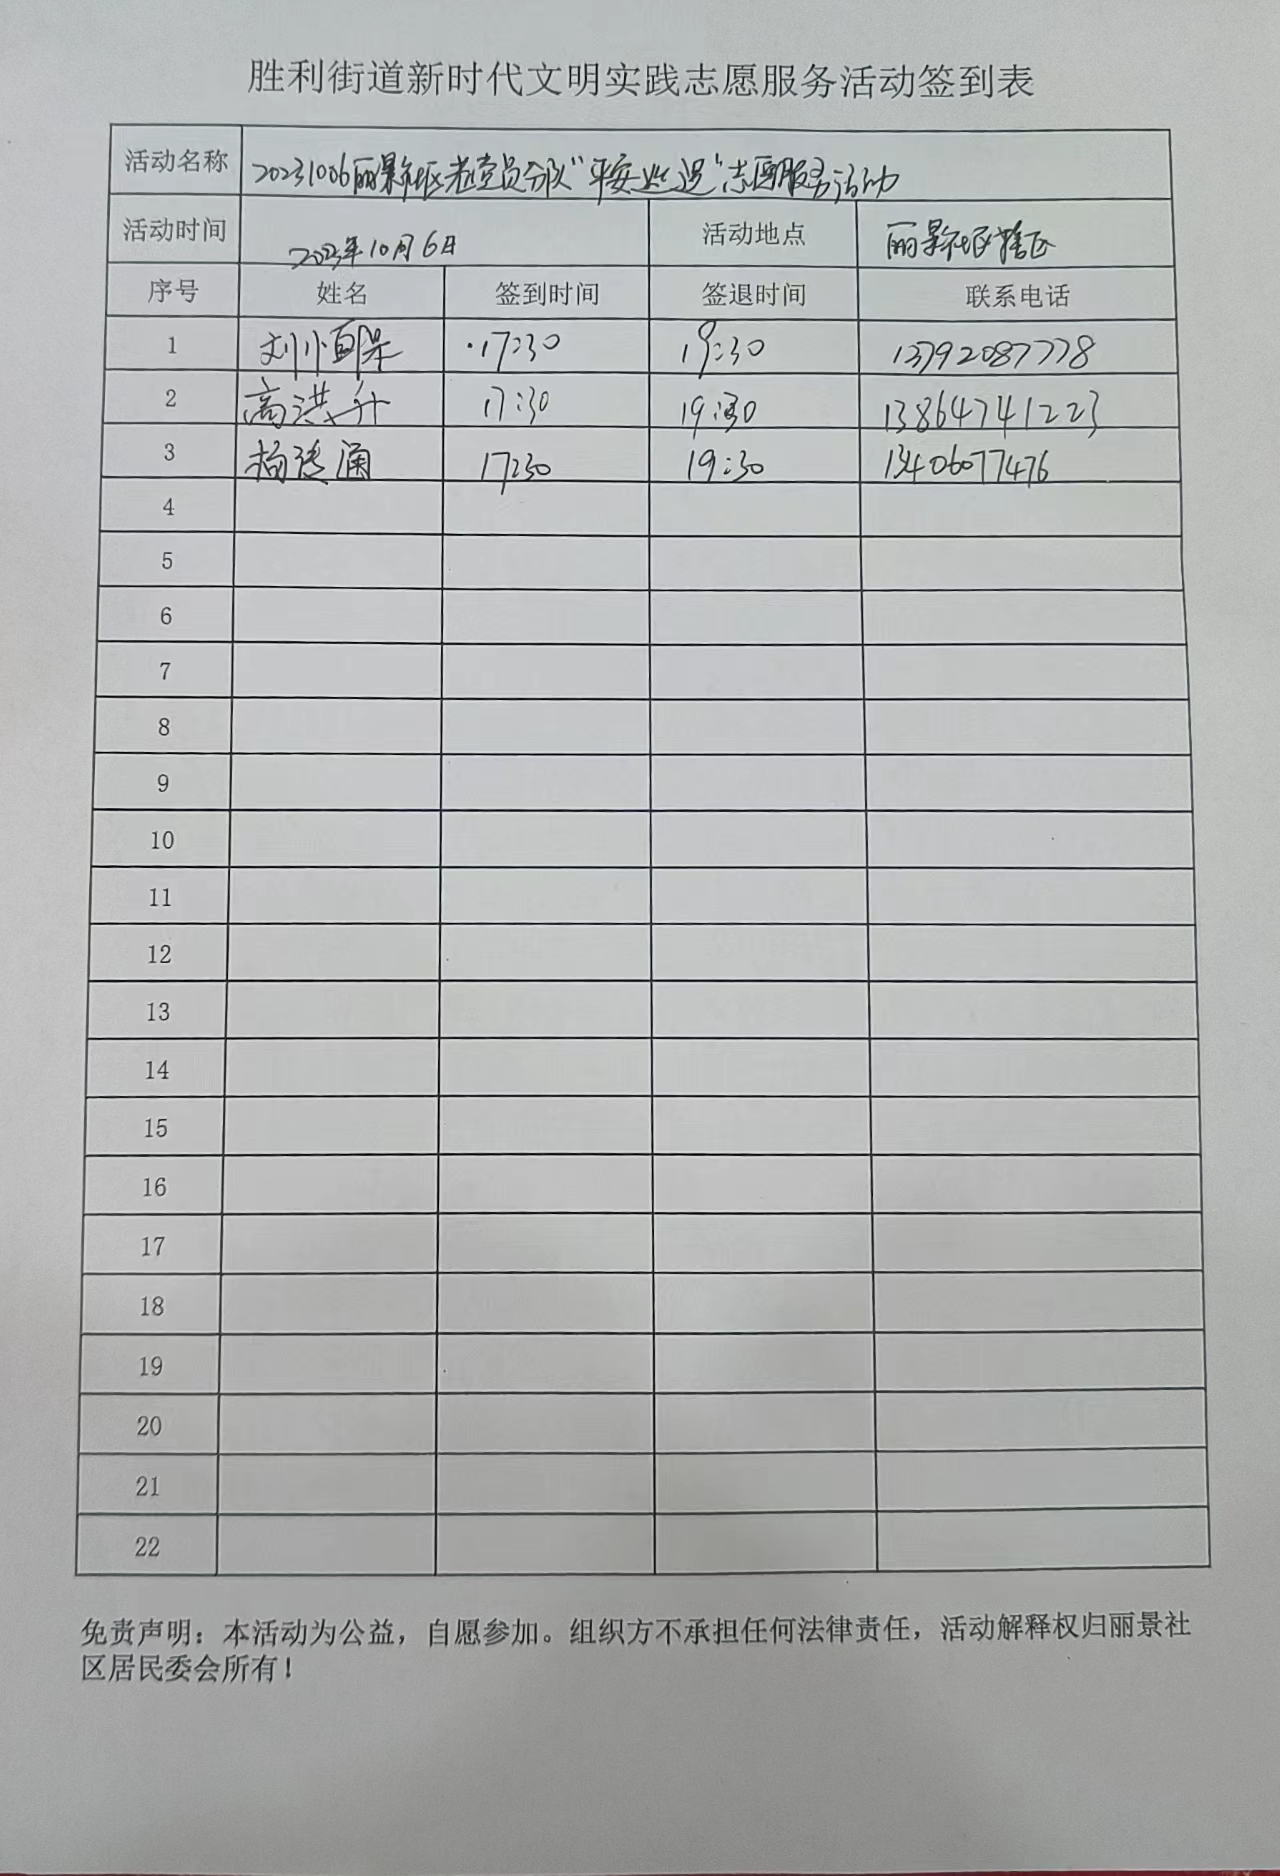 胜利街道新时代文明实践志愿服务活动签到表
活动名称 20231006丽景社区老党员分队“平安巡逻”志愿服务活动
活动时间 2023年10月6日 活动地点 丽景社区辖区
序号 姓名 签到时间 签退时间 联系电话
1 17:30 19:30 13792087778
2 高洪升 17:30 19:30 13864741223
3 17:30 19:30 13406077476
4
5
6
7
8
9
10
11
12
13
14
15
16
17
18
19
20
21
22
免责声明：本活动为公益，自愿参加。组织方不承担任何法律责任，活动解释权归丽景社
区居民委会所有！